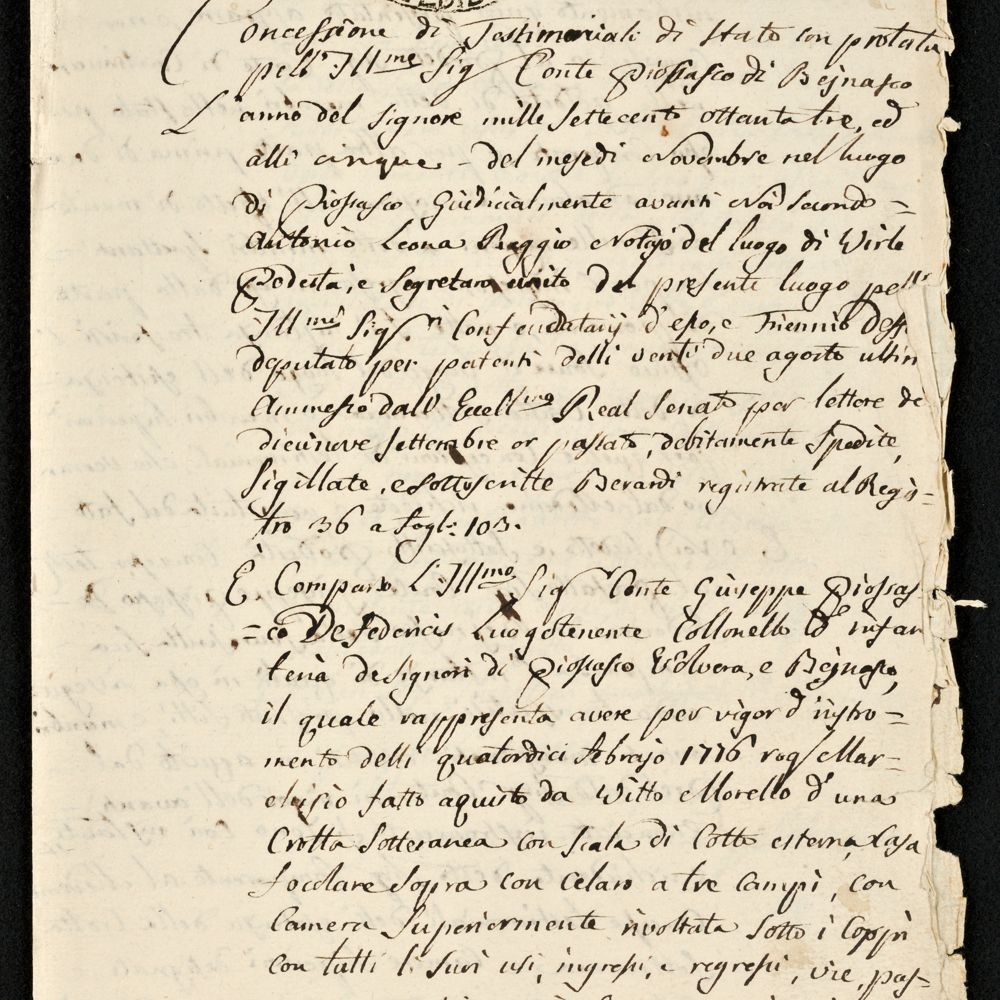 Concessione di Testimoniali di Stato con protesta
pell' Ill.mo Sig.r Conte Piossasco di Bejnasco
L'anno del Signore mille settecento ottanta tre, ed
alli cinque = del mese di Novembre nel luogo
di Piossasco Giudicialmente avanti Noi Secondo =
Antonio Leona Raggio Notajo del luogo di Virle
Podestà, e Segretaro unito del presente luogo pell'
Ill.mi Sig.ri Confeudatarj d'esso, e Triennio
deputato per patenti delli venti due agosto ultim
Ammesso dall' Eccell.mo Real Senato per lettere de
diecinove settembre or passato, debitamente spedite,
sigillate, e sottoscritte Berardi registrate al Regis-
tro 36 a fogl: 103.
È Comparso l'Ill.mo Sig.r Conte Giuseppe Piossas
=co De Federicis Luogotenente Collonello d'infan
teria de Signori di Piossasco Volvera, e Bejnasco,
il quale rappresenta avere per vigor d'instro=
mento delli quatordici febrajo 1776 rog.to Mar=
chisio fatto aquisto da Vitto Morello d'una
Crotta sotteranea con scala di Cotto esterna, Casa
focolare sopra con Celaro a tre campi, con
Camera superiormente rivoltata sotto i Coppi
con tutti li suoi usi, ingressi, e regressi, vie, pas=